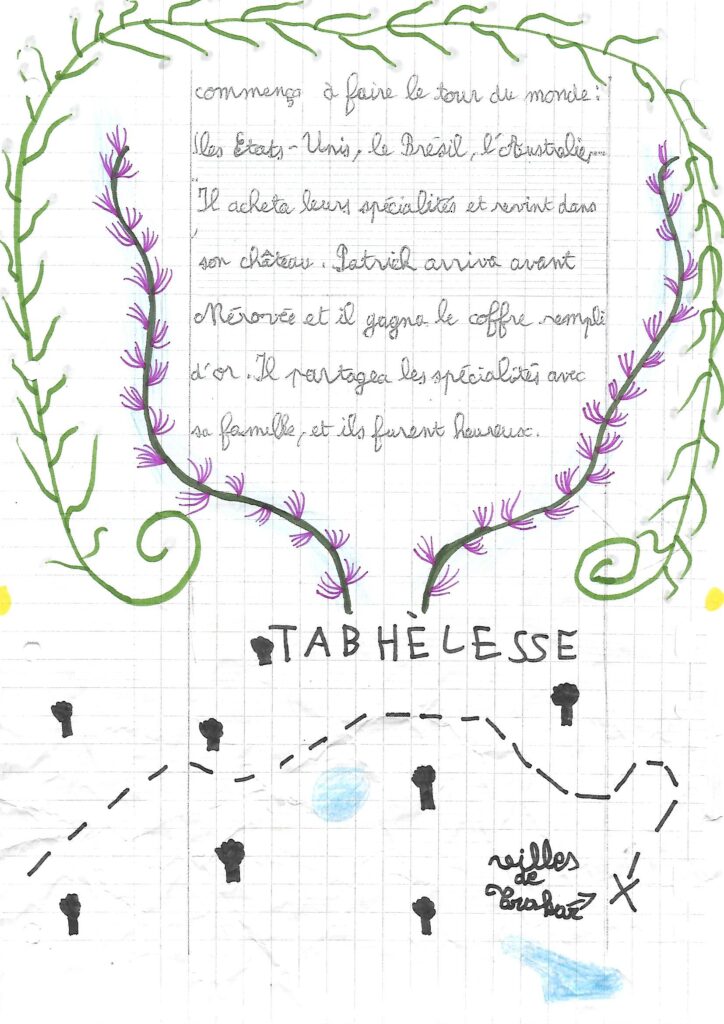 commença à faire le tour du monde :
les Etats-Unis, le Brésil, l'Australie,...
Il acheta leurs spécialités et revint dans
son château. Patrick arriva avant
Mérovée et il gagna le coffre rempli
d'or. Il partagea les spécialités avec
sa famille, et ils furent heureux.
TABHÈLESSE
de